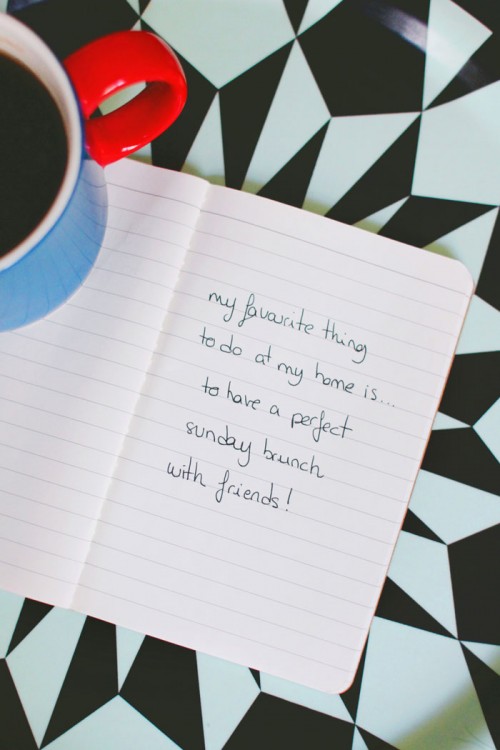 my favourite thing
to do at my home is...
to have a perfect
sunday brunch
with friends!